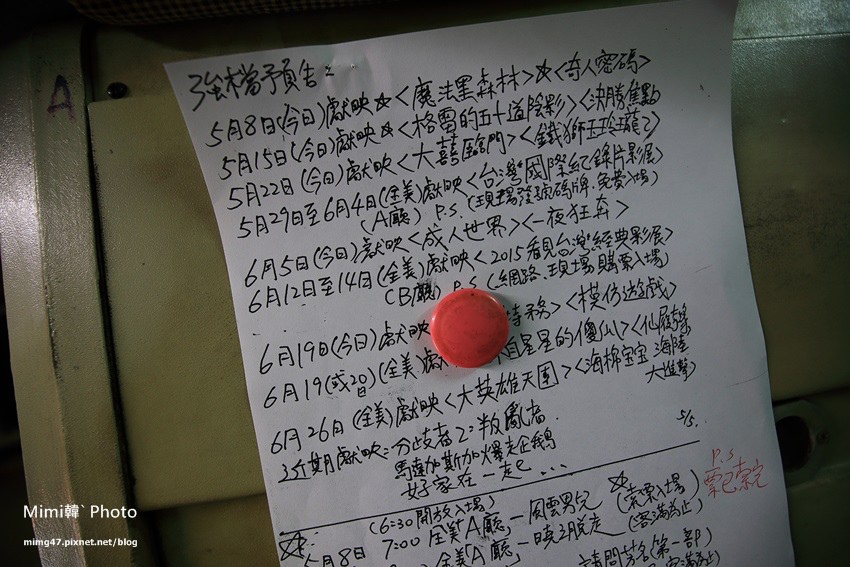 強檔予預告：
5月8日(今日)獻映☆<魔法黑森林>☆<奇人密碼>
5月15日(今日)獻映☆<格雷的五十道陰影><決勝焦點>
5月22日(今日)獻映<大囍臨門><鐵獅玉玲瓏2>
5月29日至6月4日(全美)獻映<台灣國際紀錄片影展>
(A廳) P.S.(現場發號碼牌.免費入場)
6月5日(今日)獻映<成人世界><一夜狂奔>
6月12日至14日(全美)獻映<2015看見台灣經典影展>
(B廳) P.S(網路.現場購票入場)
6月19日(今日)獻映 特務><模仿遊戲>
6月19(或20日)(全美)獻 自星星的傻仙><仙履奇緣
6月26日(全美)獻映<大英雄天團><海棉宝宝 海陸
大進擊>
近期獻映：分歧者2：叛亂者
5/5.
馬達加斯加爆走企鵝
好家在一起 ...
P.S
票已索完
(6:30開放入場)
☆ 5月8日 7:00 全美"A廳—風雲男兒 ☆(索票入場)
(客滿為止)
全美「A廳」—曉之脫走
請問芳名(第一部)
客滿為止)
A
Mimi韓ˋ Photo
mimg47.pixnet.net/blog